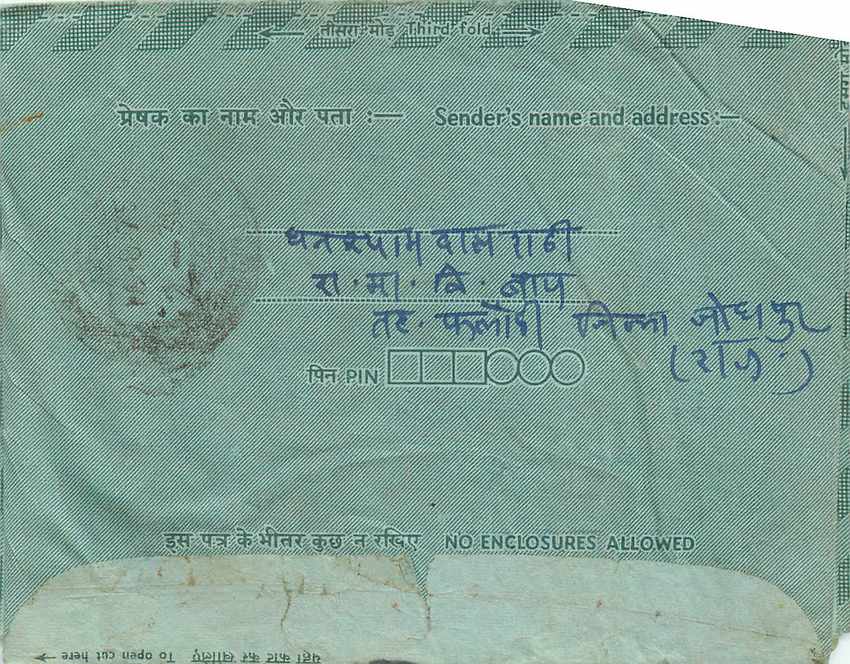 तीसरा मोड़ Third fold
प्रेषक का नाम और पता :— Sender's name and address :—
घनश्याम दास राठी
रा. मा. वि. बाप
तह. फलोदी जिला जोधपुर
(राज.)
पिन PIN
इस पत्र के भीतर कुछ न रखिए NO ENCLOSURES ALLOWED
यहाँ काट कर खोलिए To open cut here